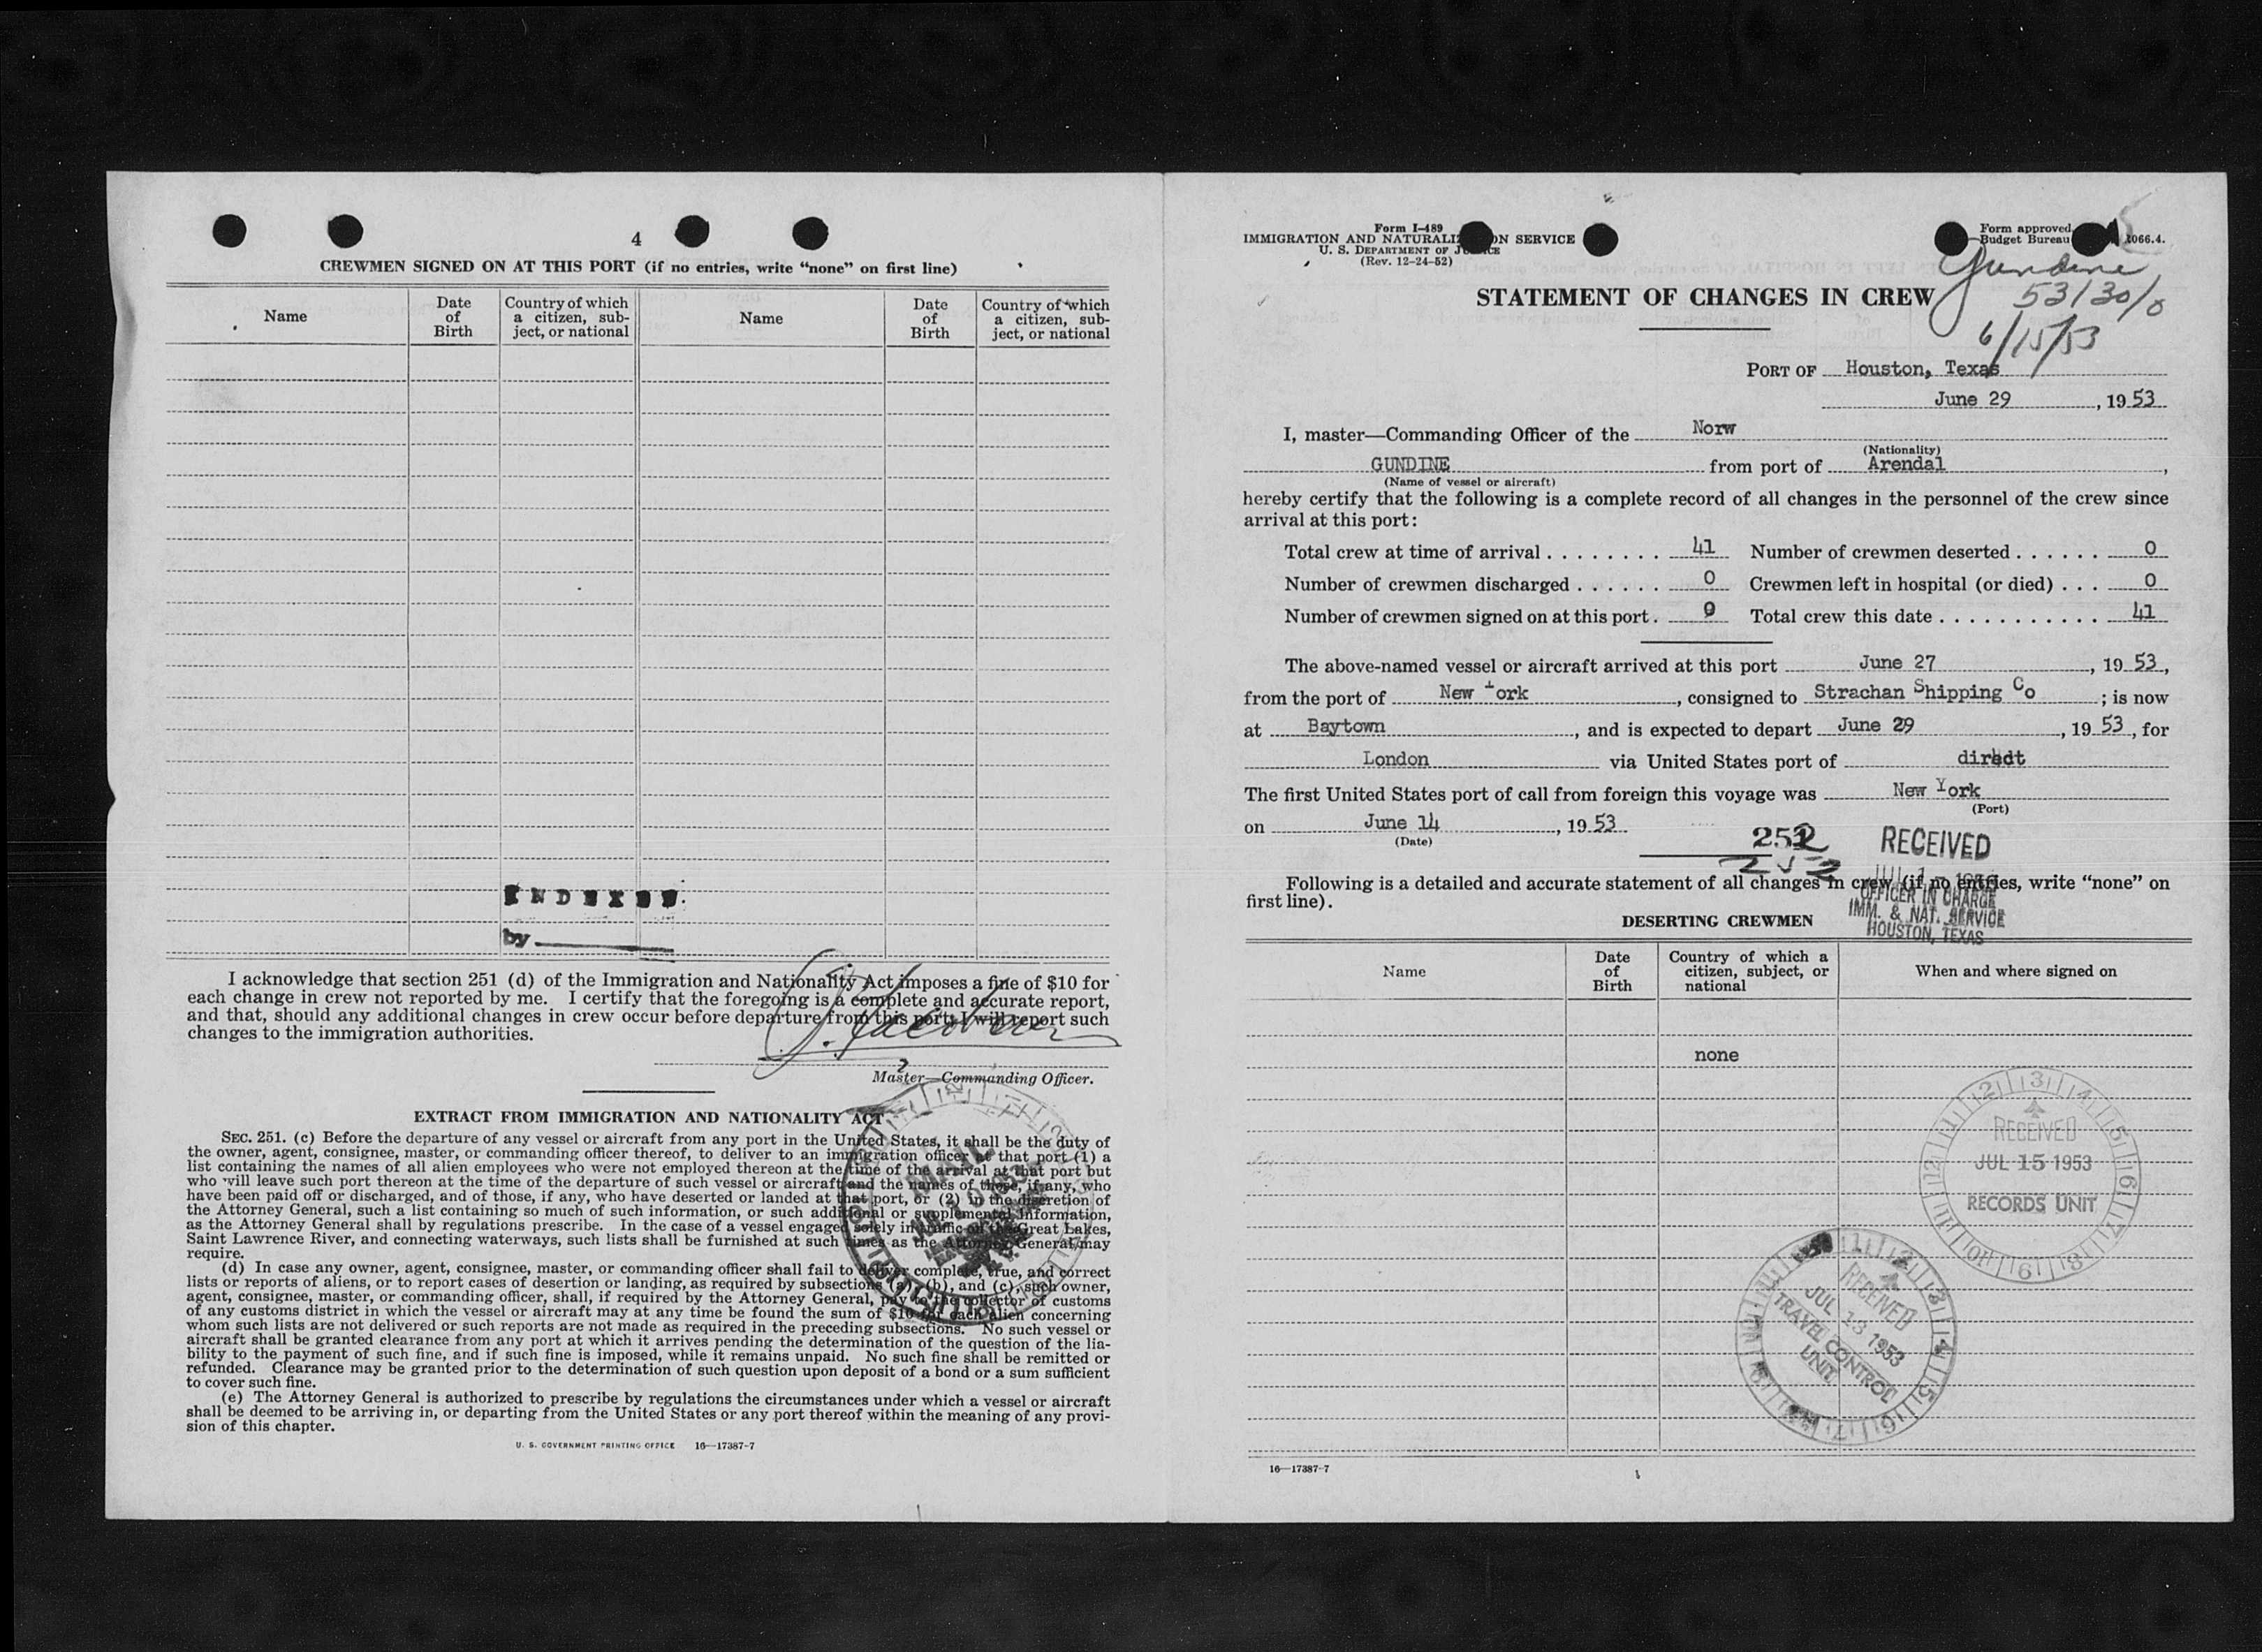 4
CREWMEN SIGNED ON AT THIS PORT (if no entries, write “none” on first line)
Name
Date of Birth
Country of which a citizen, subject, or national
Name
Date of Birth
Country of which a citizen, subject, or national
INDEXED
by
I acknowledge that section 251 (d) of the Immigration and Nationality Act imposes a fine of $10 for
each change in crew not reported by me. I certify that the foregoing is a complete and accurate report,
and that, should any additional changes in crew occur before departure from this port, I will report such
changes to the immigration authorities.
Master—Commanding Officer.
EXTRACT FROM IMMIGRATION AND NATIONALITY ACT
SEC. 251. (c) Before the departure of any vessel or aircraft from any port in the United States, it shall be the duty of
the owner, agent, consignee, master, or commanding officer thereof, to deliver to an immigration officer at that port (1) a
list containing the names of all alien employees who were not employed thereon at the time of the arrival at that port but
who will leave such port thereon at the time of the departure of such vessel or aircraft and the names of those, if any, who
have been paid off or discharged, and of those, if any, who have deserted or landed at that port, or (2) in the discretion of
the Attorney General, such a list containing so much of such information, or such additional or supplemental information,
as the Attorney General shall by regulations prescribe. In the case of a vessel engaged solely in traffic on the Great Lakes,
Saint Lawrence River, and connecting waterways, such lists shall be furnished at such times as the Attorney General may
require.
(d) In case any owner, agent, consignee, master, or commanding officer shall fail to deliver complete, true, and correct
lists or reports of aliens, or to report cases of desertion or landing, as required by subsections (a), (b), and (c), such owner,
agent, consignee, master, or commanding officer, shall, if required by the Attorney General, pay to the collector of customs
of any customs district in which the vessel or aircraft may at any time be found the sum of $10 for each alien concerning
whom such lists are not delivered or such reports are not made as required in the preceding subsections. No such vessel or
aircraft shall be granted clearance from any port at which it arrives pending the determination of the question of the lia-
bility to the payment of such fine, and if such fine is imposed, while it remains unpaid. No such fine shall be remitted or
refunded. Clearance may be granted prior to the determination of such question upon deposit of a bond or a sum sufficient
to cover such fine.
(e) The Attorney General is authorized to prescribe by regulations the circumstances under which a vessel or aircraft
shall be deemed to be arriving in, or departing from the United States or any port thereof within the meaning of any provi-
sion of this chapter.
U. S. GOVERNMENT PRINTING OFFICE 16—17387-7
Form I-489
IMMIGRATION AND NATURALIZATION SERVICE
U. S. DEPARTMENT OF JUSTICE
(Rev. 12-24-52)
Form approved.
Budget Bureau 1066.4.
Gundine
53/30/0
6/15/53
STATEMENT OF CHANGES IN CREW
PORT OF Houston, Texas
June 29, 1953
I, master—Commanding Officer of the Norw
(Nationality)
GUNDINE from port of Arendal,
(Name of vessel or aircraft)
hereby certify that the following is a complete record of all changes in the personnel of the crew since
arrival at this port:
Total crew at time of arrival . . . . . . . . 41 Number of crewmen deserted . . . . . . 0
Number of crewmen discharged . . . . . . 0 Crewmen left in hospital (or died) . . . 0
Number of crewmen signed on at this port . 0 Total crew this date . . . . . . . . . . . 41
The above-named vessel or aircraft arrived at this port June 27, 1953,
from the port of New York, consigned to Strachan Shipping Co; is now
at Baytown, and is expected to depart June 29, 1953, for
London via United States port of diredt
The first United States port of call from foreign this voyage was New York
(Port)
on June 14, 1953
(Date)
252
252
RECEIVED
OFFICER IN CHARGE
IMM. & NAT. SERVICE
HOUSTON, TEXAS
Following is a detailed and accurate statement of all changes in crew (if no entries, write “none” on
first line).
DESERTING CREWMEN
Name
Date of Birth
Country of which a citizen, subject, or national
When and where signed on
none
RECEIVED
JUL 15 1953
RECORDS UNIT
RECEIVED
JUL 13 1953
TRAVEL CONTROL
UNIT
16—17387-7